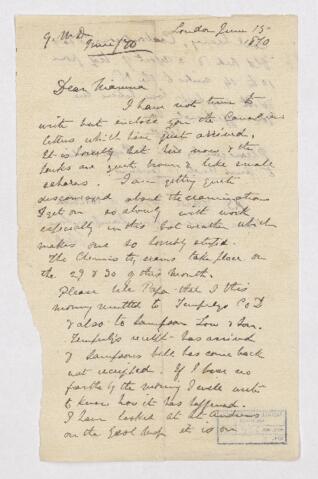 G. M. D
June / 70
London June 15
1870
Dear Mamma
I have not time to
write but enclose you the Canadian
letters which have just arrived.
It is horribly hot here now & the
parks are quite brown & like small
saharas. I am getting quite
discouraged about the examinations
I get on so slowly with work
especially in this hot weather which
makes one so horribly stupid.
The Chemistry exams take place on
the 29 & 30 of this month.
Please tell Papa that I this
morning remitted to Tempelys Co
& also to Sampson Low & Son.
receipt has arrived
& Sampsons bill has come back
not receipted. If I hear no
further by the morning I will write
to know how it has happened.
I have looked at St Andrews
on the map it is on